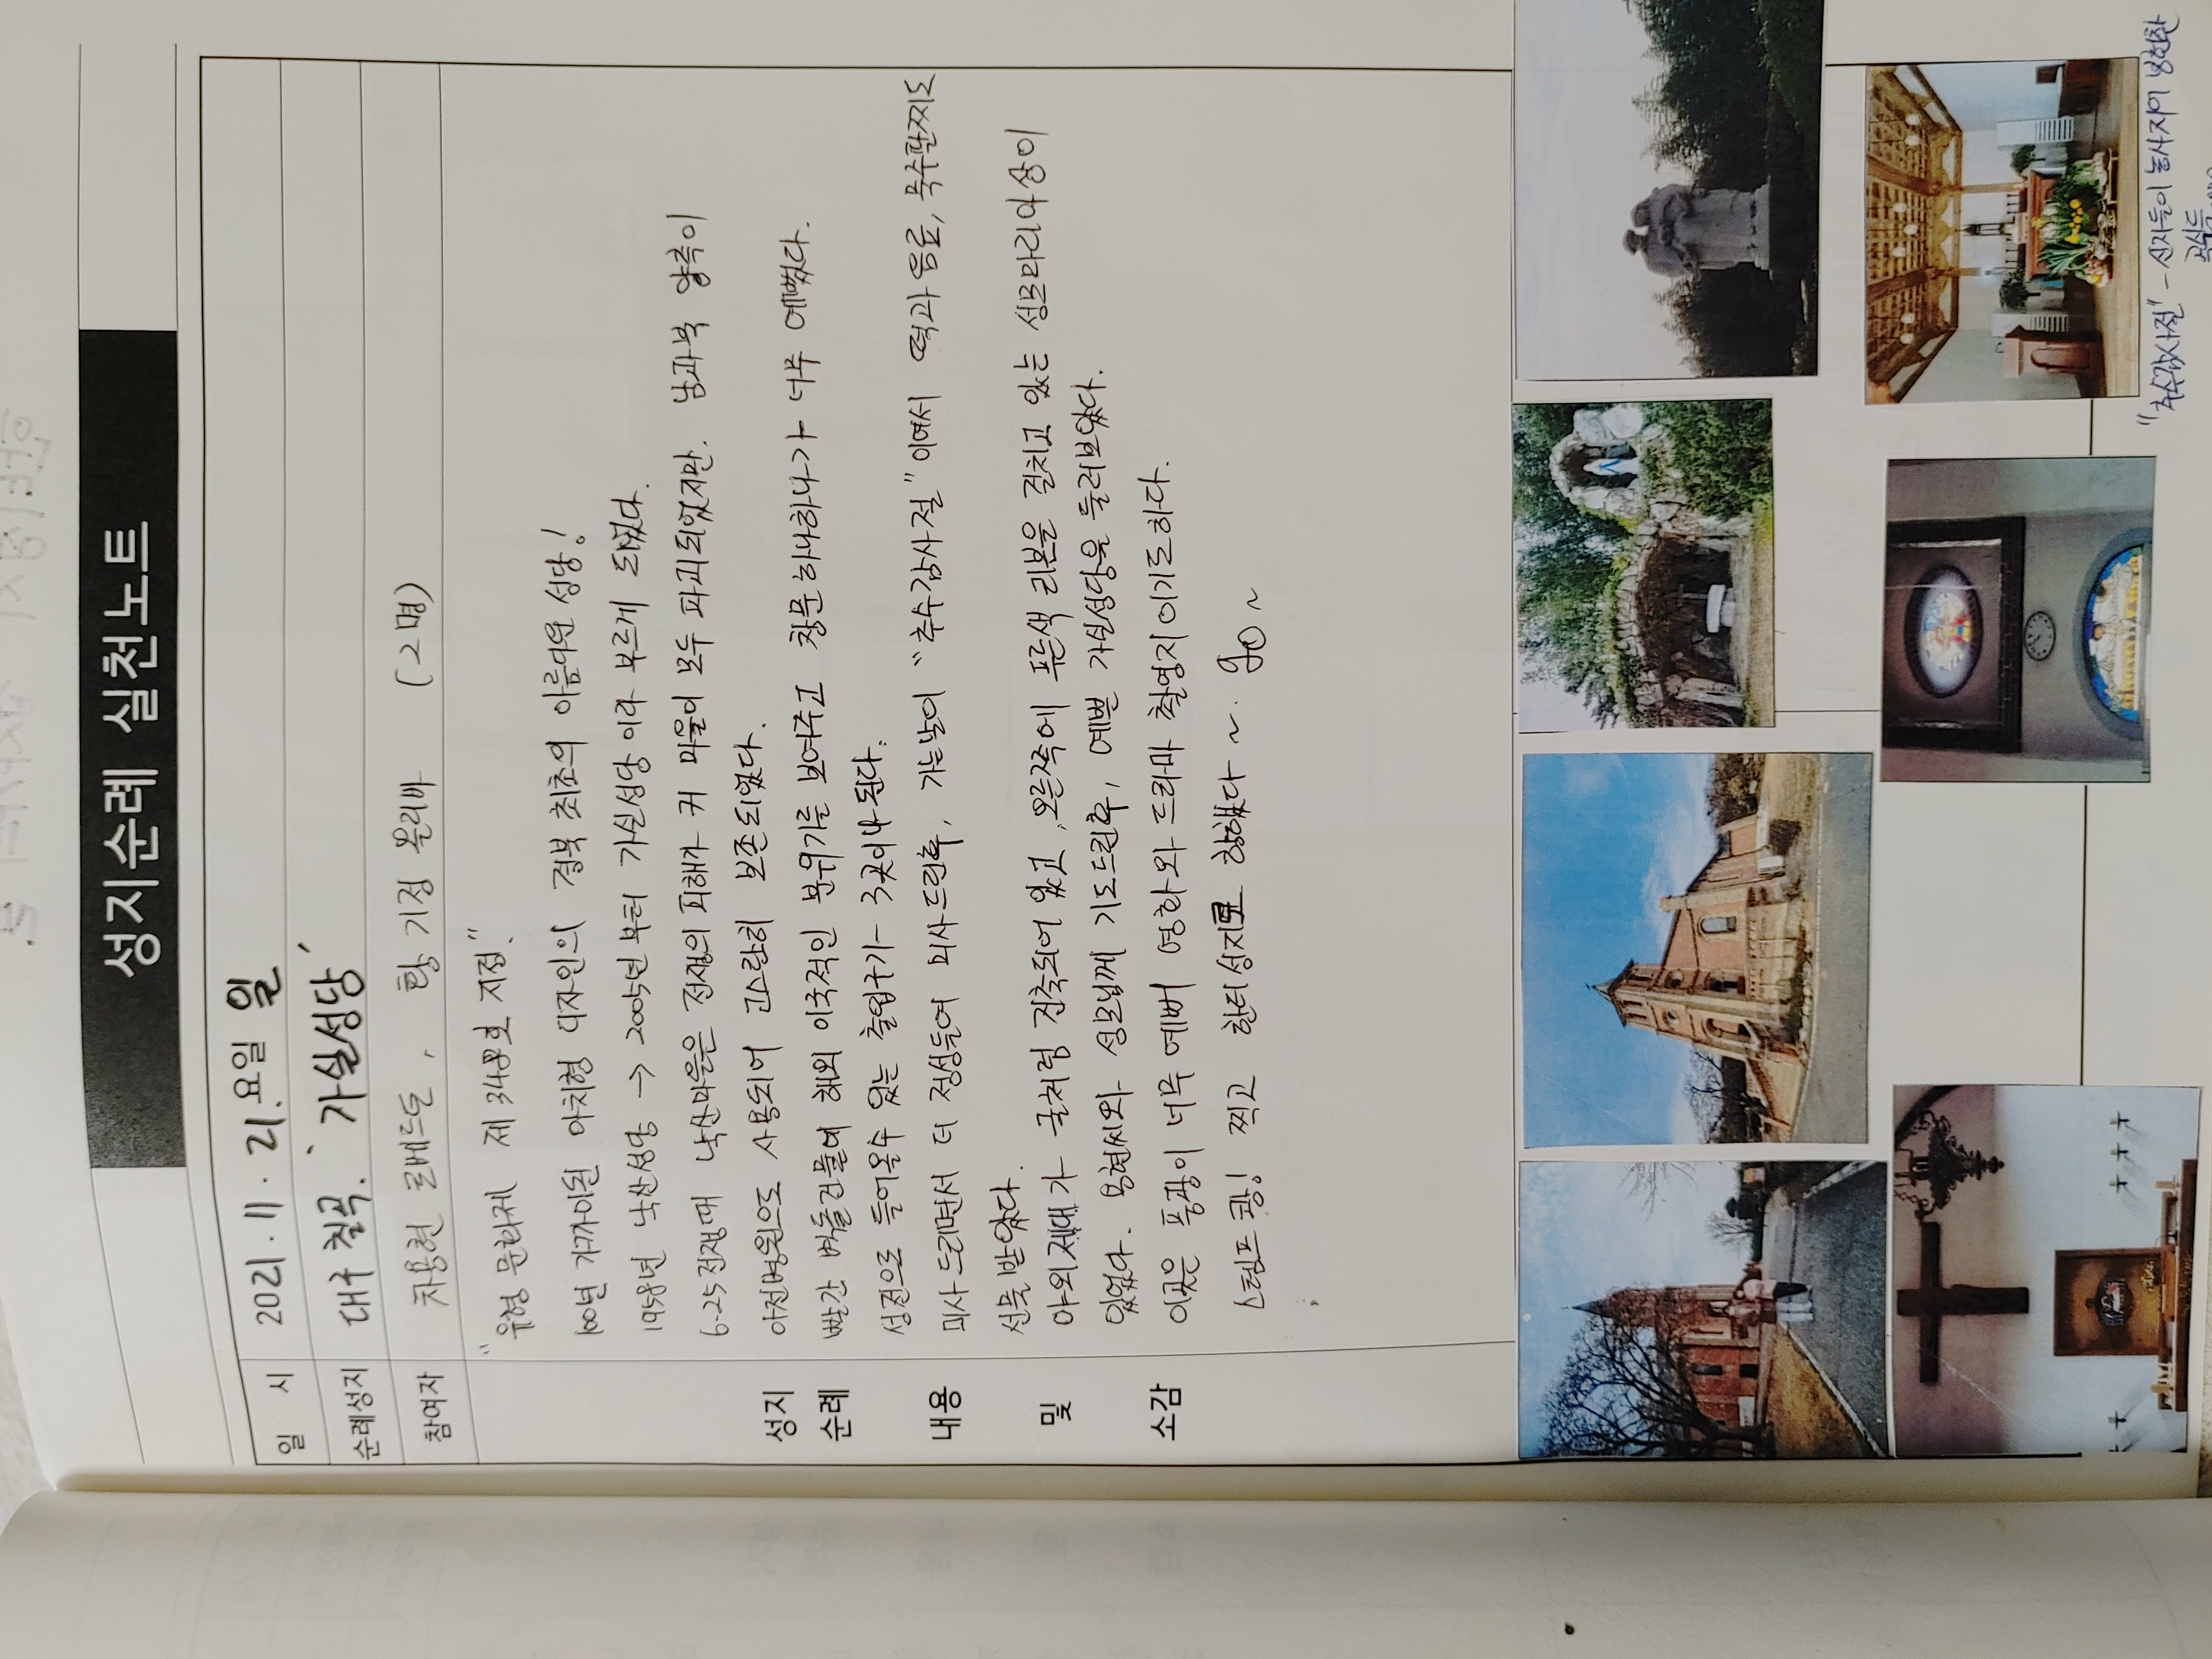 성지순례 실천노트
일 시 2021. 11. 21. 요일 일
순례성지 대구 칠곡. '가실성당'
참여자 차용현 로베르또, 황기정 올리바 (2명)
성지
순례
내용
및
소감
"유형 문화제 제 348호 지정."
100년 가까이된 아치형 디자인의 경북 최초의 아름다운 성당!
1958년 낙산성당 → 2005년 부터 가실성당 이라 부르게 되었다.
6-25전쟁때 낙산마을은 전쟁의 피해가 커 마을이 모두 파괴되었지만. 남과북 양측이
야전병원으로 사용되어 고스란히 보존되었다.
빨간 벽돌건물에 해외 이국적인 분위기를 보여주고 창문하나하나가 너무 예뻤다.
성전으로 들어올수 있는 출입구가 3곳이나 된다.
미사 드리면서 더 정성들여 미사드린후, 가는날이 "추수감사절" 이여서 떡과 음료, 묵주판지도
선물 받았다.
야외제대가 굴처럼 건축되어 있고, 오른쪽에 푸른색 리본을 걸치고 있는 성모마리아상이
있었다. 용현씨와 성모님께 기도드린후, 예쁜 가실성당을 둘러보았다.
이곳은 풍광이 너무 예뻐 영화와 드라마 촬영지이기도 하다.
스템프 쾅! 찍고 한티성지로 향했다~. 공~
"추수감사절" - 신자들이 농사지어 봉헌한
곡식들